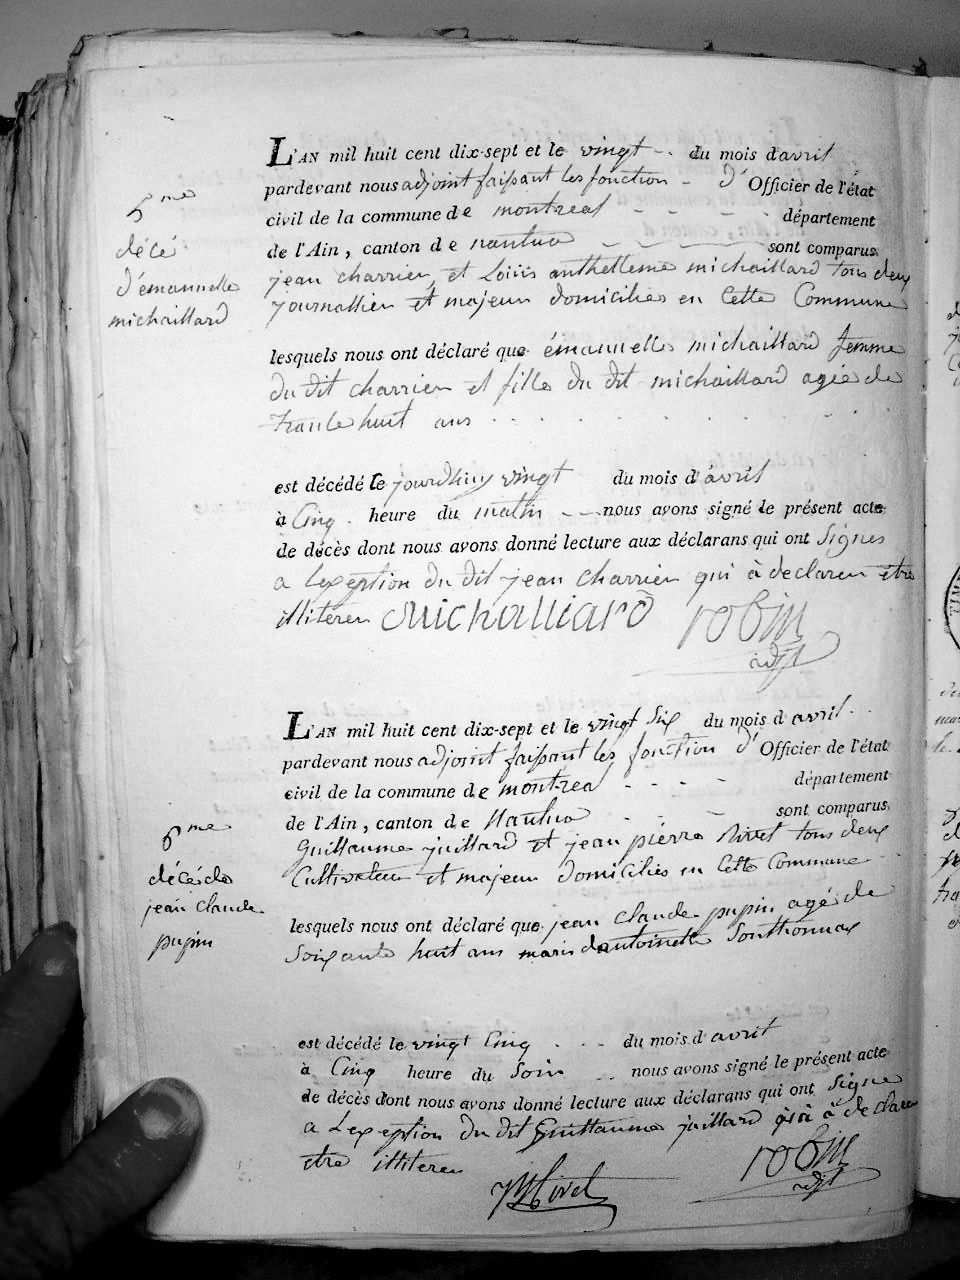 L'AN mil huit cent dix-sept et le vingt du mois d'avril
pardevant nous adjoint faisant les fonction d' Officier de l'état
civil de la commune de montreal département
de l'Ain, canton de nantua sont comparus
jean charrier et Loüis anthelleme michaillard tous deux
journallier et majeur domicilies en Cette Commune
lesquels nous ont déclaré que émanuelle michaillard femme
du dit charrier et fille du dit michaillard agée de
trante huit ans
est décédé le jourdhuy vingt du mois d'avril
à Cinq heure du matin nous avons signé le présent acte
de décès dont nous avons donné lecture aux déclarans qui ont Signes
a Lexeption du dit jean charrier qui à declarer être
illiterer Michailliard robin
adjt
5me
décé
d'émanuelle
michaillard
L'AN mil huit cent dix-sept et le vingt Six du mois d'avril
pardevant nous adjoint faisant les fonction d' Officier de l'état
civil de la commune de montreal département
de l'Ain, canton de Nantua sont comparus
Guillaume juillard et jean pierre Nivet tous deux
Cultivateur et majeur domicilies en Cette Commune
lesquels nous ont déclaré que jean Claude pupin agé de
Soixante huit ans maris dantoinette Southonnax
est décédé le vingt Cinq du mois d'avril
à Cinq heure du Soir nous avons signé le présent acte
de décès dont nous avons donné lecture aux déclarans qui ont Signe
a Lexeption du dit Guillaume juillard qui à declarer
etre illiterer
robin
adjt
6me
décé de
jean claude
pupin